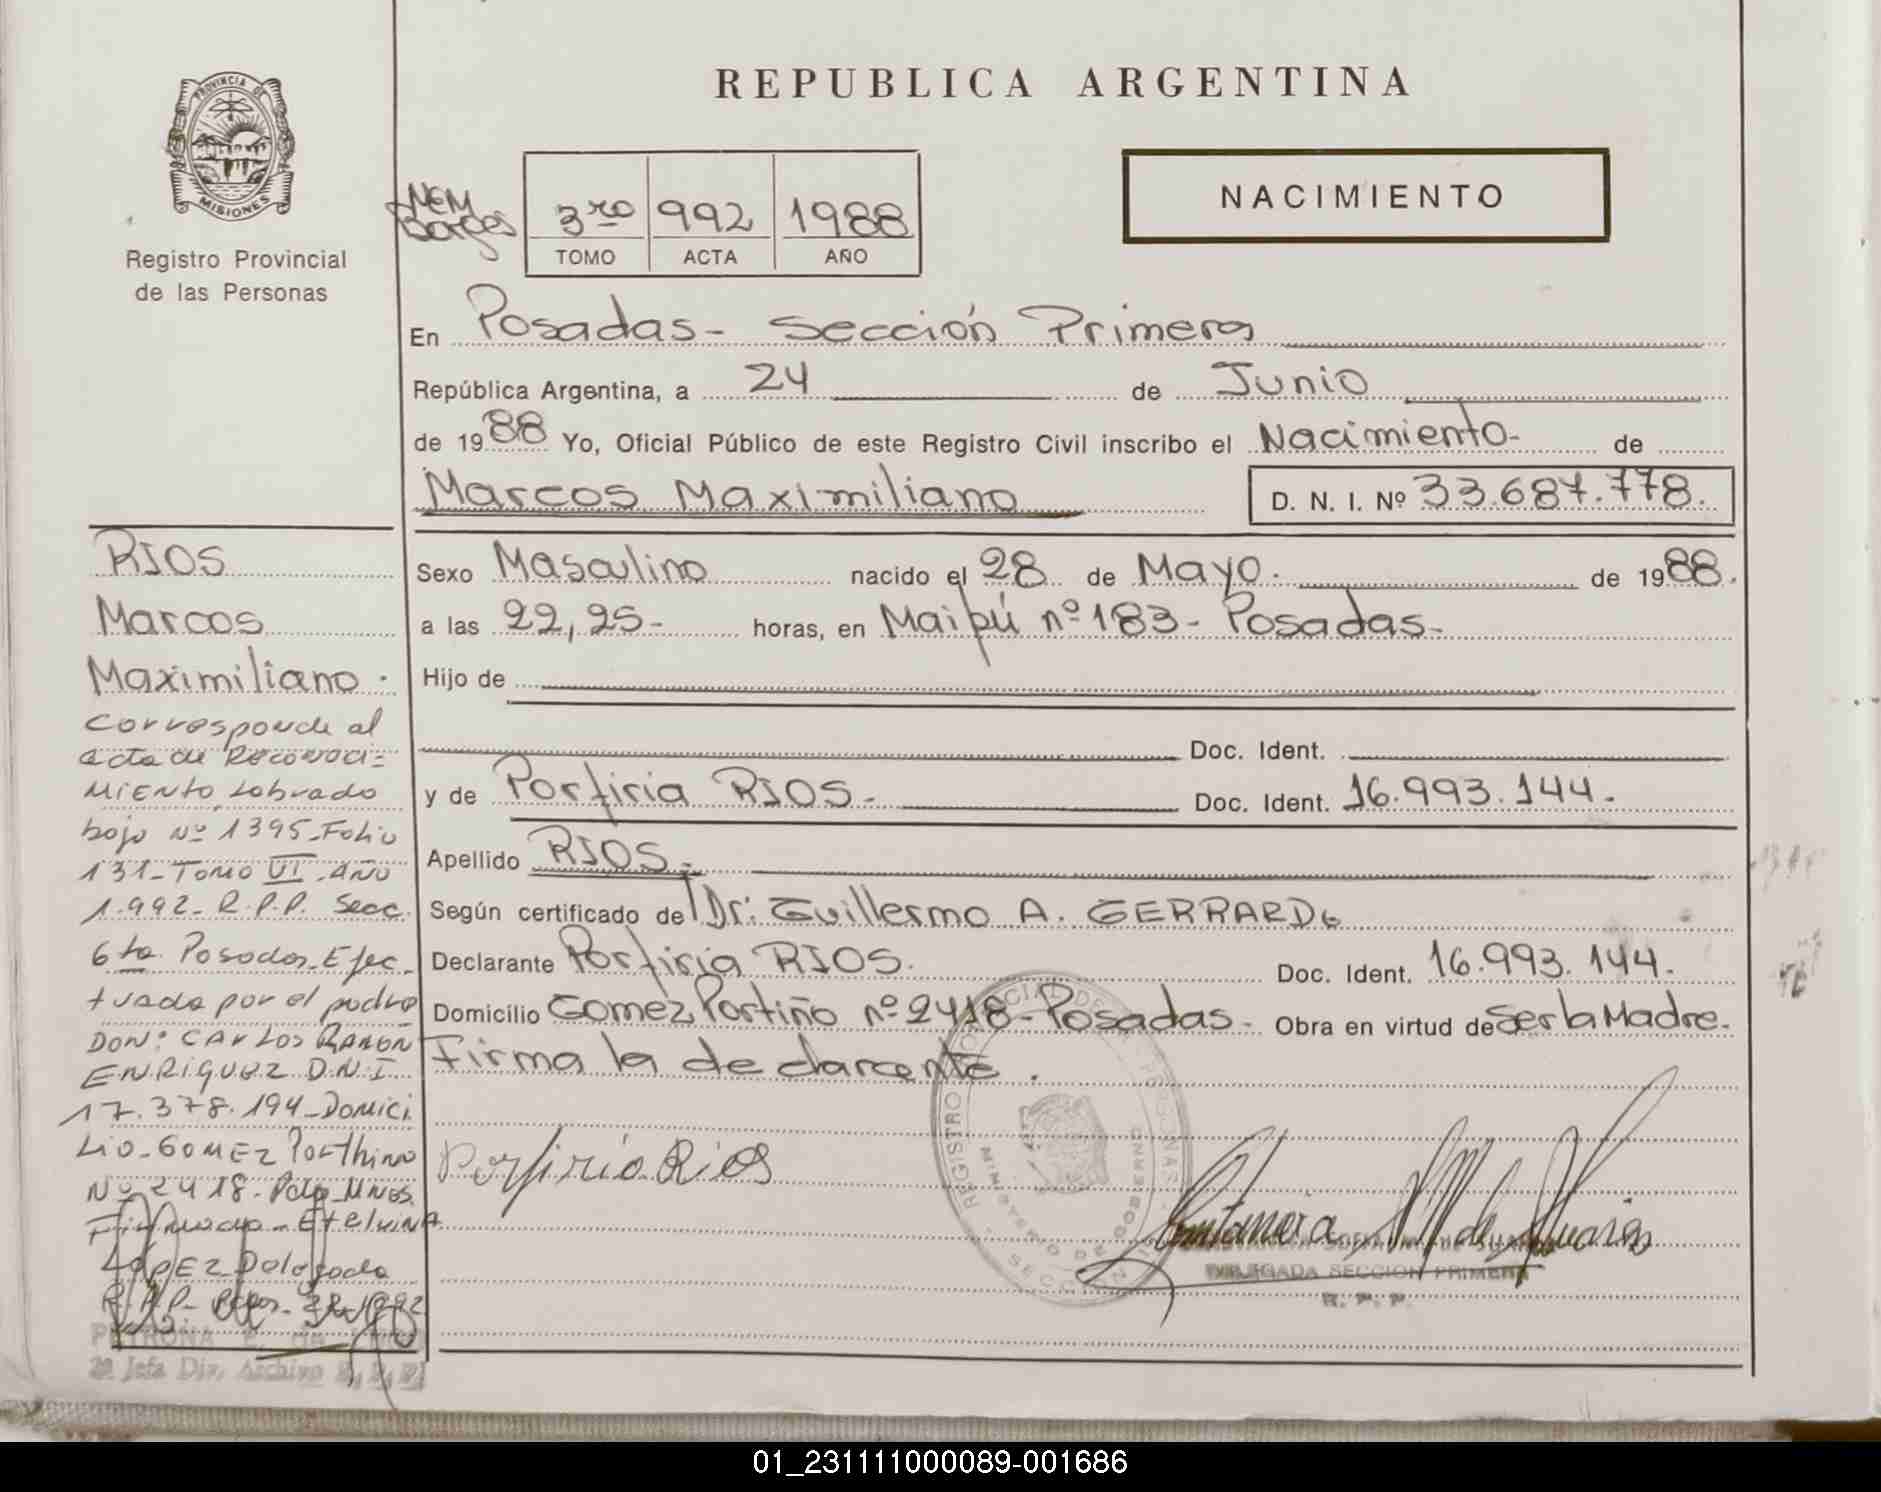 PROVINCIA DE
MISIONES
Registro Provincial
de las Personas
REPUBLICA ARGENTINA
NEM
Borges
3ro 992 1988
TOMO ACTA AÑO
NACIMIENTO
En Posadas - Sección Primera
República Argentina, a 24 de Junio
de 1988 Yo, Oficial Público de este Registro Civil inscribo el Nacimiento- de
Marcos Maximiliano D. N. I. Nº 33.687.778.
Sexo Masculino nacido el 28 de Mayo. de 1988.
a las 22,25- horas, en Maipú nº 183- Posadas-
Hijo de
Doc. Ident.
y de Porfiria RIOS- Doc. Ident. 16.993.144.
Apellido RIOS-
Según certificado de Dr: Guillermo A. GERRARDo
Declarante Porfiria RIOS. Doc. Ident. 16.993.144.
Domicilio Gomez Portiño nº 2418- Posadas- Obra en virtud de Ser la Madre.
Firma la declarante.
Porfiria Rios
REGISTRO PROVINCIAL DE LAS PERSONAS
MINISTERIO DE GOBIERNO
SECCION
DELEGADA SECCION PRIMERA
R. P. P.
RIOS
Marcos
Maximiliano.
Corresponde al
acta de Reconoci=
miento Labrado
bajo Nº 1395-Folio
131-Tomo VI-Año
1.992- R.P.P. Secc.
6ta Posadas-Efec-
tuada por el padre
DON: CARLOS RAMÓN
ENRIQUEZ D.N.I.
17.378.194-Domici
Lio-GOMEZ Porthino
Nº 2418-Pdas-Mnes.
Firmado-Etelvina
LOPEZ Delegada
R.P.P-
PETRONA E. de
2ª Jefa Div. Archivo R. P. P.
01_231111000089-001686